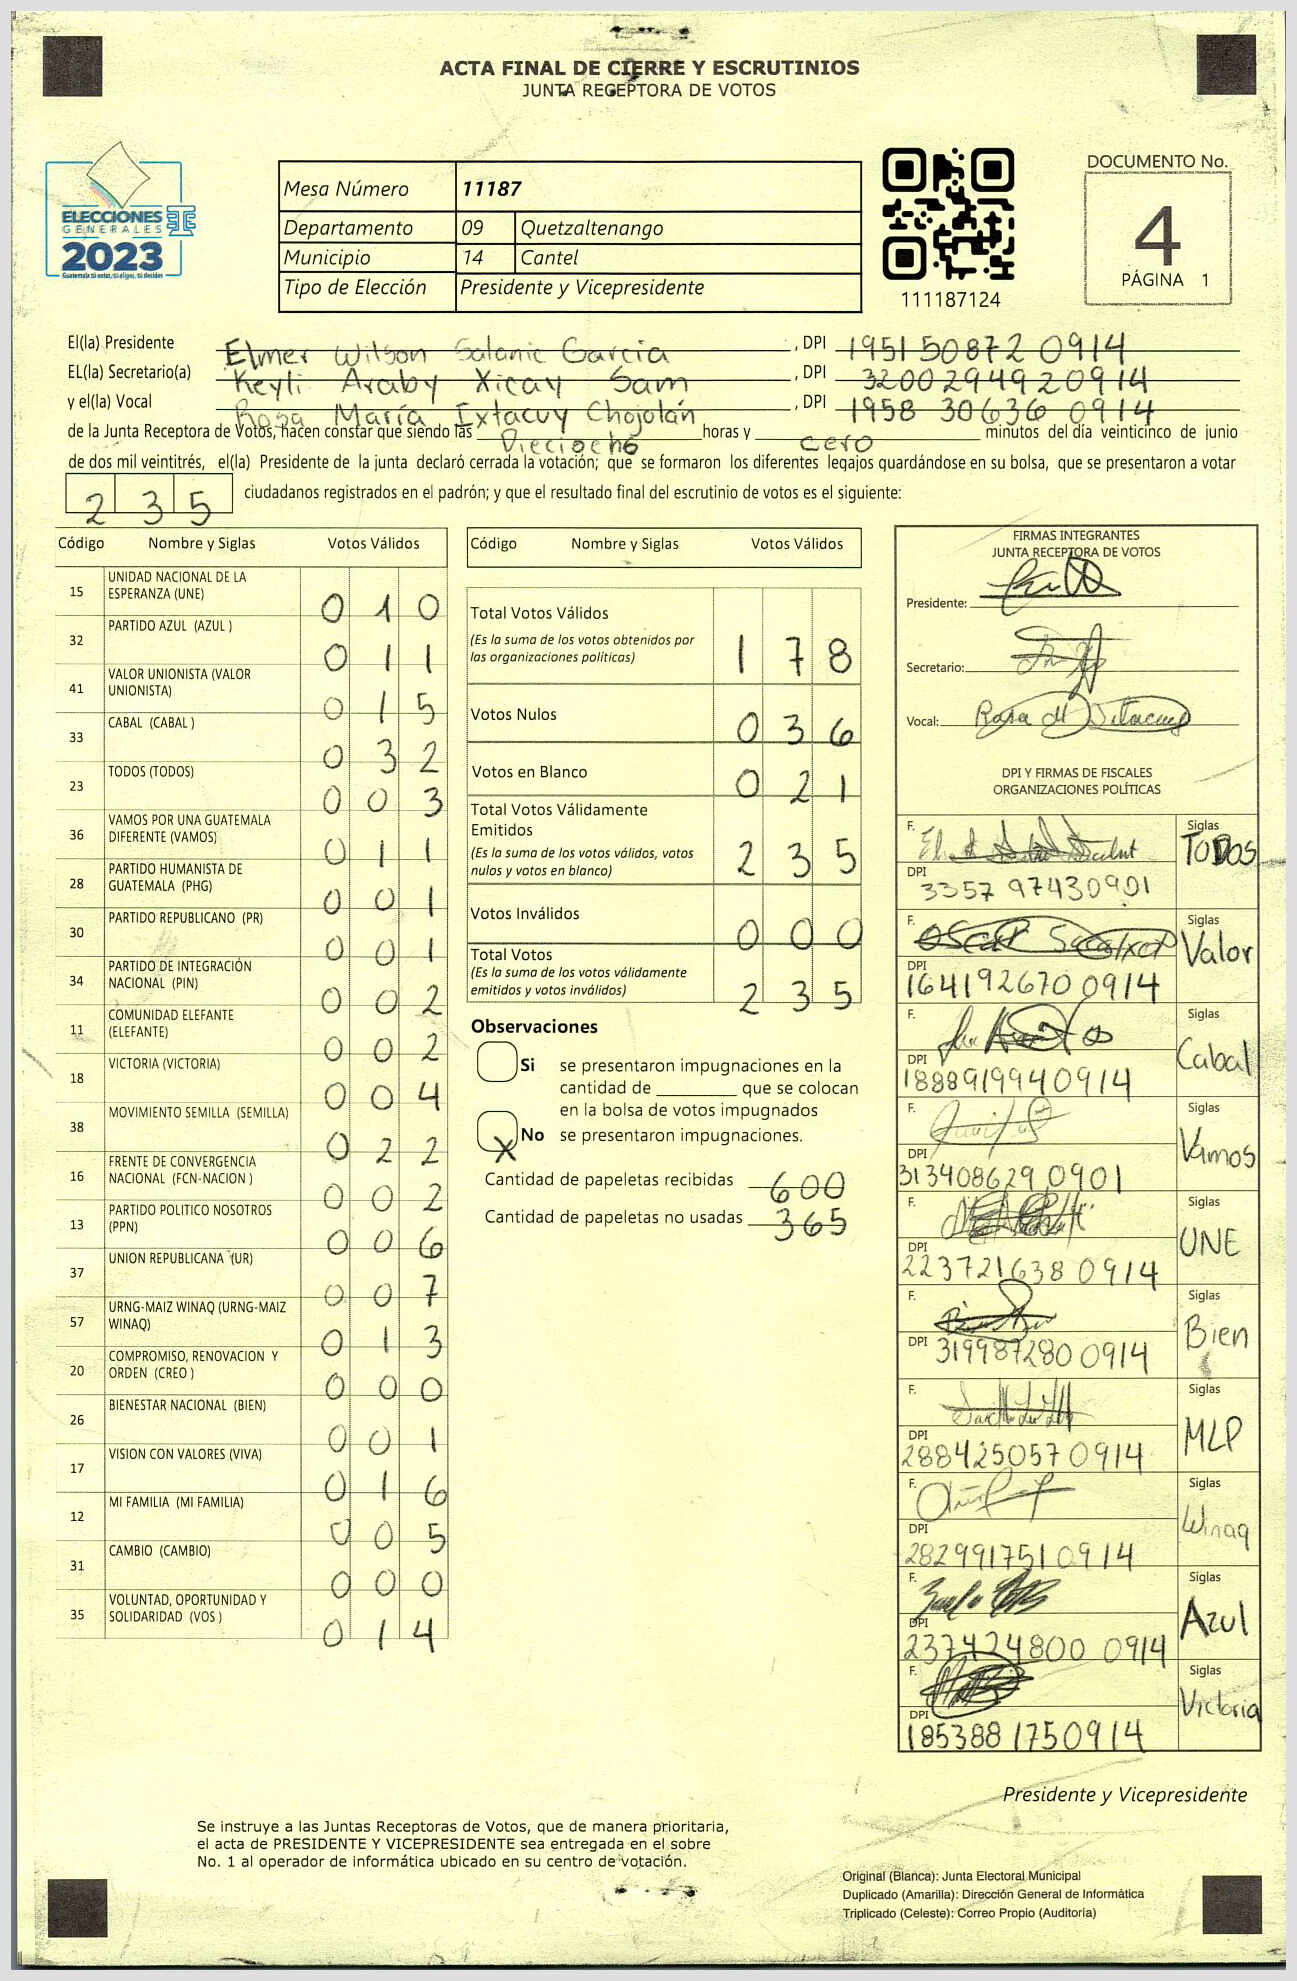 ACTA FINAL DE CIERRE Y ESCRUTINIOS
JUNTA RECEPTORA DE VOTOS
ELECCIONES
GENERALES
2023
Guatemala tú entras, tú eliges, tú decides
Mesa Número 11187
Departamento 09 Quetzaltenango
Municipio 14 Cantel
Tipo de Elección Presidente y Vicepresidente
111187124
DOCUMENTO No.
4
PÁGINA 1
El(la) Presidente Elmer Wilson Salanic Garcia, DPI 1951 50872 0914
EL(la) Secretario(a) Keyli Araby Xicay Sam, DPI 3200294920914
y el(la) Vocal Rosa María Ixtacuy Chojolán, DPI 1958 30636 0914
de la Junta Receptora de Votos, hacen constar que siendo las Dieciocho horas y cero minutos del día veinticinco de junio
de dos mil veintitrés, el(la) Presidente de la junta declaró cerrada la votación; que se formaron los diferentes legajos quardándose en su bolsa, que se presentaron a votar
235 ciudadanos registrados en el padrón; y que el resultado final del escrutinio de votos es el siguiente:
Código Nombre y Siglas Votos Válidos
15 UNIDAD NACIONAL DE LA ESPERANZA (UNE) 010
32 PARTIDO AZUL (AZUL ) 011
41 VALOR UNIONISTA (VALOR UNIONISTA) 015
33 CABAL (CABAL ) 032
23 TODOS (TODOS) 003
36 VAMOS POR UNA GUATEMALA DIFERENTE (VAMOS) 011
28 PARTIDO HUMANISTA DE GUATEMALA (PHG) 001
30 PARTIDO REPUBLICANO (PR) 001
34 PARTIDO DE INTEGRACIÓN NACIONAL (PIN) 002
11 COMUNIDAD ELEFANTE (ELEFANTE) 002
18 VICTORIA (VICTORIA) 004
38 MOVIMIENTO SEMILLA (SEMILLA) 022
16 FRENTE DE CONVERGENCIA NACIONAL (FCN-NACION ) 002
13 PARTIDO POLITICO NOSOTROS (PPN) 006
37 UNION REPUBLICANA (UR) 007
57 URNG-MAIZ WINAQ (URNG-MAIZ WINAQ) 013
20 COMPROMISO, RENOVACION Y ORDEN (CREO ) 000
26 BIENESTAR NACIONAL (BIEN) 001
17 VISION CON VALORES (VIVA) 016
12 MI FAMILIA (MI FAMILIA) 005
31 CAMBIO (CAMBIO) 000
35 VOLUNTAD, OPORTUNIDAD Y SOLIDARIDAD (VOS ) 014
Código Nombre y Siglas Votos Válidos
Total Votos Válidos 178
(Es la suma de los votos obtenidos por
las organizaciones políticas)
Votos Nulos 036
Votos en Blanco 021
Total Votos Válidamente
Emitidos 235
(Es la suma de los votos válidos, votos
nulos y votos en blanco)
Votos Inválidos 000
Total Votos 235
(Es la suma de los votos válidamente
emitidos y votos inválidos)
Observaciones
Si se presentaron impugnaciones en la
cantidad de ________ que se colocan
en la bolsa de votos impugnados
X No se presentaron impugnaciones.
Cantidad de papeletas recibidas 600
Cantidad de papeletas no usadas 365
FIRMAS INTEGRANTES
JUNTA RECEPTORA DE VOTOS
Presidente:
Secretario:
Vocal:
DPI Y FIRMAS DE FISCALES
ORGANIZACIONES POLÍTICAS
F. Siglas TODOS
DPI 3357 97430901
F. Siglas Valor
DPI 164192670 0914
F. Siglas Cabal
DPI 1888919940914
F. Siglas Vamos
DPI 313408629 0901
F. Siglas UNE
DPI 223721638 0914
F. Siglas Bien
DPI 319987280 0914
F. Siglas MLP
DPI 288425057 0914
F. Siglas Winaq
DPI 282991751 0914
F. Siglas Azul
DPI 237424800 0914
F. Siglas Victoria
DPI 185388 1750914
Presidente y Vicepresidente
Se instruye a las Juntas Receptoras de Votos, que de manera prioritaria,
el acta de PRESIDENTE Y VICEPRESIDENTE sea entregada en el sobre
No. 1 al operador de informática ubicado en su centro de votación.
Original (Blanca): Junta Electoral Municipal
Duplicado (Amarilla): Dirección General de Informática
Triplicado (Celeste): Correo Propio (Auditoria)